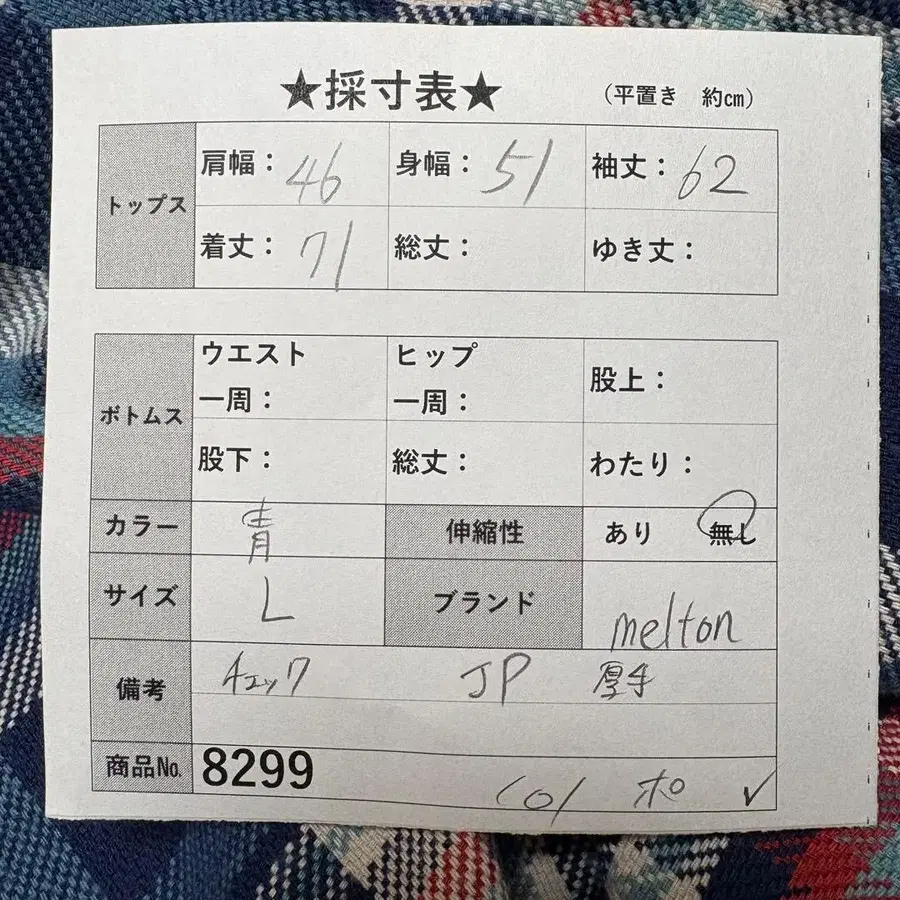 ★採寸表★ (平置き 約㎝)
トップス
肩幅: 46 身幅: 51 袖丈: 62
着丈: 71 総丈: ゆき丈:
ボトムス
ウエスト一周: ヒップ一周: 股上:
股下: 総丈: わたり:
カラー 青 伸縮性 あり 無し
サイズ L ブランド melton
備考 チェック JP 厚手
商品№ 8299
ホ○ ✓